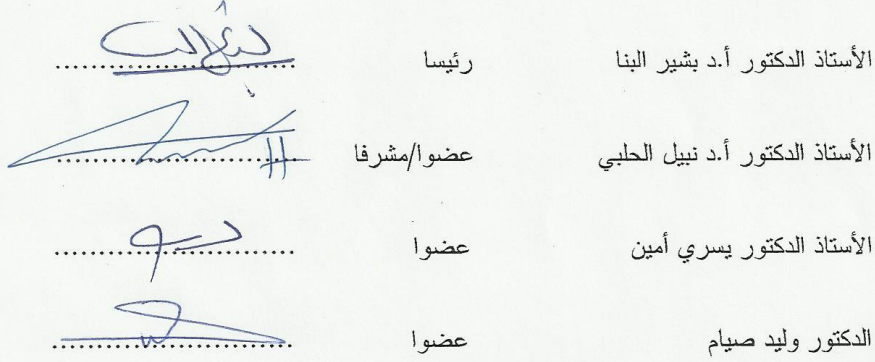 الأستاذ الدكتور أ.د بشير البنا رئيسا ....................
الأستاذ الدكتور أ.د نبيل الحلبي عضوا/مشرفا ....................
الأستاذ الدكتور يسري أمين عضوا ....................
الدكتور وليد صيام عضوا ....................